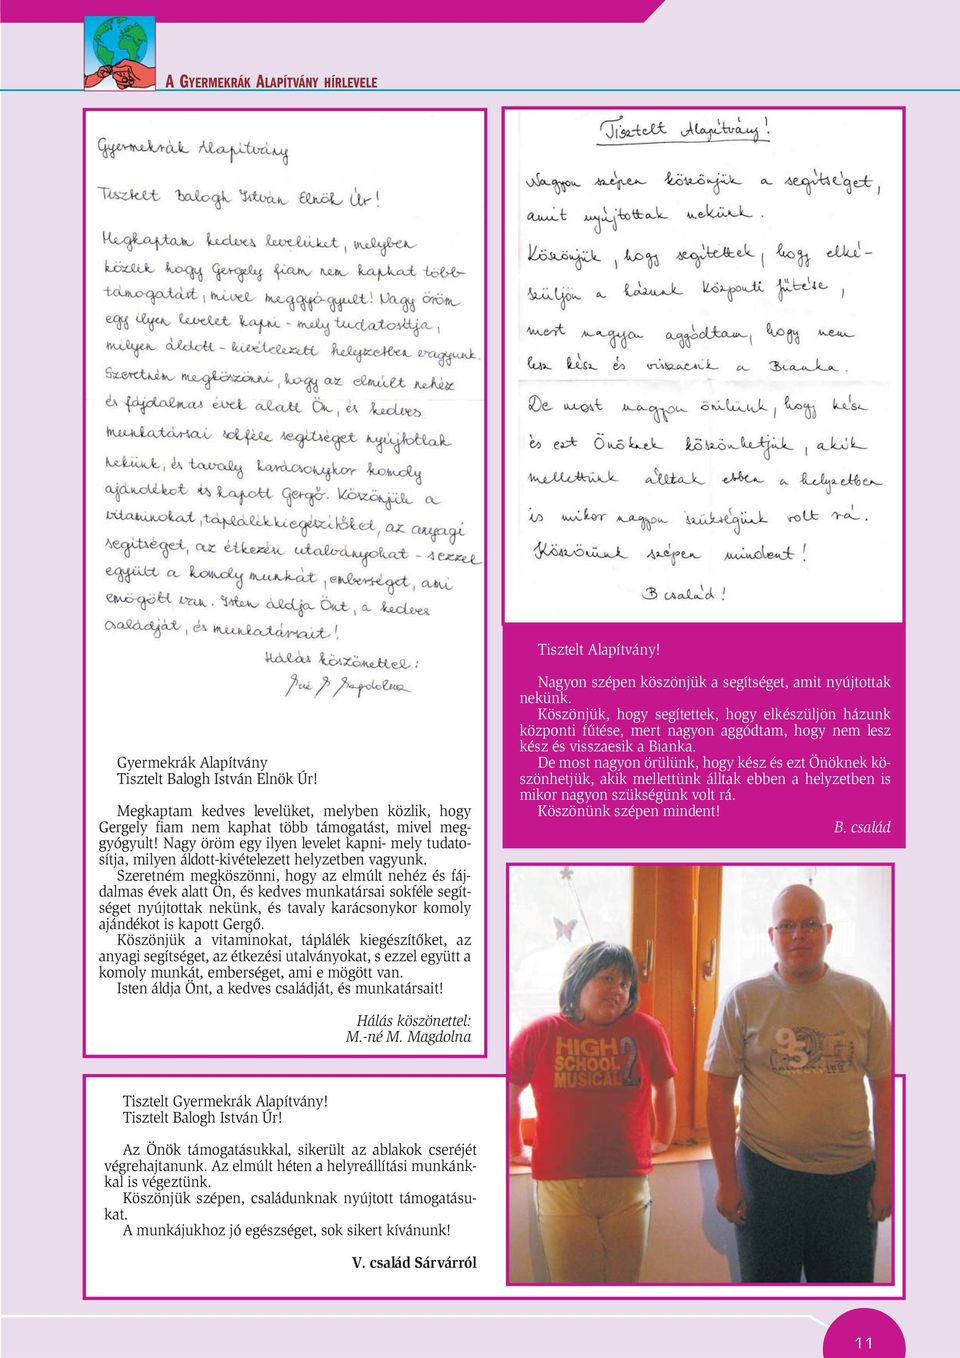 A GYERMEKRÁK ALAPÍTVÁNY HÍRLEVELE
Gyermekrák Alapítvány
Tisztelt Balogh István Elnök Úr!
Megkaptam kedves levelüket, melyben
közlik hogy Gergely fiam nem kaphat több
támogatást, mivel meggyógyult! Nagy öröm
egy ilyen levelet kapni - mely tudatosítja,
milyen áldott - kivételezett helyzetben vagyunk.
Szeretném megköszönni, hogy az elmúlt nehéz
és fájdalmas évek alatt Ön, és kedves
munkatársai sokféle segítséget nyújtottak
nekünk, és tavaly karácsonykor komoly
ajándékot is kapott Gergő. Köszönjük a
vitaminokat, táplálékkiegészítőket, az anyagi
segítséget, az étkezési utalványokat - s ezzel
együtt a komoly munkát, emberséget, ami
emögött van. Isten áldja Önt, a kedves
családját, és munkatársait!
Hálás köszönettel:
Magdolna
Gyermekrák Alapítvány
Tisztelt Balogh István Elnök Úr!
Megkaptam kedves levelüket, melyben közlik, hogy
Gergely fiam nem kaphat több támogatást, mivel meg-
gyógyult! Nagy öröm egy ilyen levelet kapni- mely tudato-
sítja, milyen áldott-kivételezett helyzetben vagyunk.
Szeretném megköszönni, hogy az elmúlt nehéz és fáj-
dalmas évek alatt Ön, és kedves munkatársai sokféle segít-
séget nyújtottak nekünk, és tavaly karácsonykor komoly
ajándékot is kapott Gergő.
Köszönjük a vitaminokat, táplálék kiegészítőket, az
anyagi segítséget, az étkezési utalványokat, s ezzel együtt a
komoly munkát, emberséget, ami e mögött van.
Isten áldja Önt, a kedves családját, és munkatársait!
Hálás köszönettel:
M.-né M. Magdolna
Tisztelt Alapítvány!
Nagyon szépen köszönjük a segítséget,
amit nyújtottak nekünk.
Köszönjük, hogy segítettek, hogy elké-
szüljön a házunk központi fűtése,
mert nagyon aggódtam, hogy nem
lesz kész és visszaesik a Bianka.
De most nagyon örülünk, hogy kész
és ezt Önöknek köszönhetjük, akik
mellettünk álltak ebben a helyzetben
is mikor nagyon szükségünk volt rá.
Köszönünk szépen mindent!
B család!
Tisztelt Alapítvány!
Nagyon szépen köszönjük a segítséget, amit nyújtottak
nekünk.
Köszönjük, hogy segítettek, hogy elkészüljön házunk
központi fűtése, mert nagyon aggódtam, hogy nem lesz
kész és visszaesik a Bianka.
De most nagyon örülünk, hogy kész és ezt Önöknek kö-
szönhetjük, akik mellettünk álltak ebben a helyzetben is
mikor nagyon szükségünk volt rá.
Köszönünk szépen mindent!
B. család
HIGH
SCHOOL
MUSICAL 2
95
Tisztelt Gyermekrák Alapítvány!
Tisztelt Balogh István Úr!
Az Önök támogatásukkal, sikerült az ablakok cseréjét
végrehajtanunk. Az elmúlt héten a helyreállítási munkánk-
kal is végeztünk.
Köszönjük szépen, családunknak nyújtott támogatásu-
kat.
A munkájukhoz jó egészséget, sok sikert kívánunk!
V. család Sárvárról
11